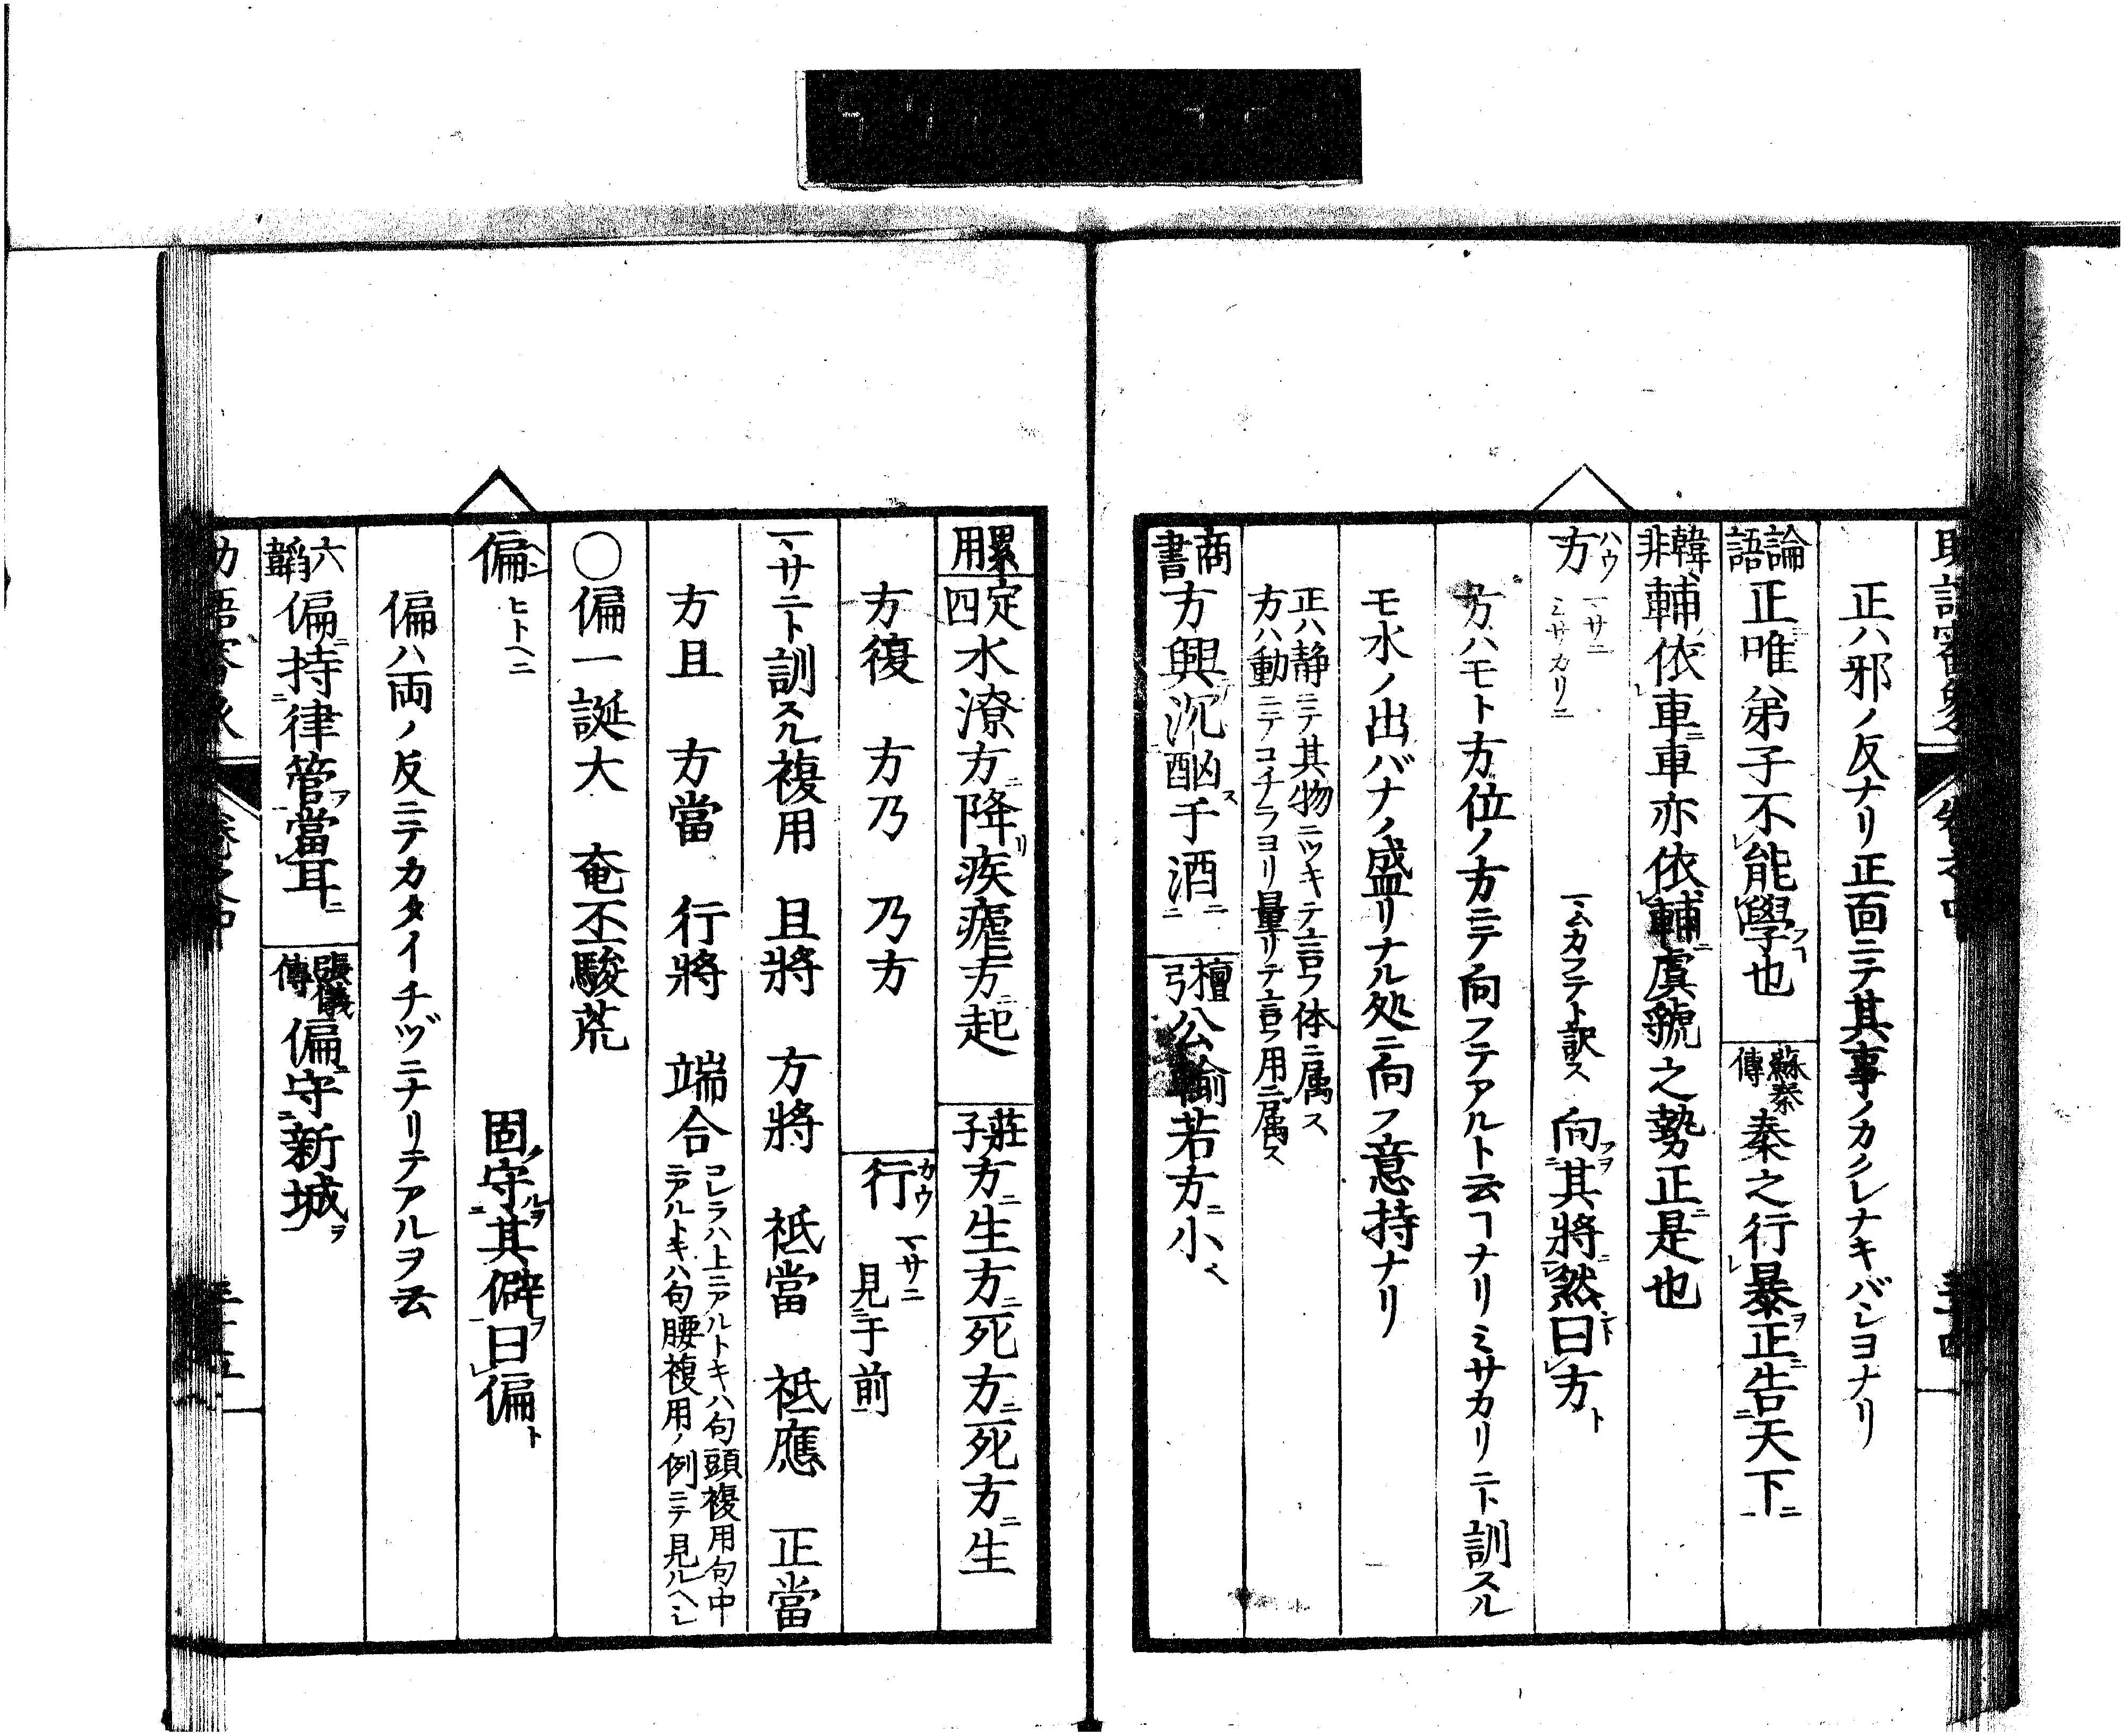 正ハ邪ノ反ナリ正面ニテ其事ノカクレナキバシヨナリ
論語 正唯弟子不能學也 蘇秦傳 秦之行暴正告天下
韓非 輔依車車亦依輔虞虢之勢正是也
方 ハウ マサニ ミサカリニ マムカフテト訳ス 向其將然曰方
方ハモト方位ノ方ニテ向フテアルト云ヿナリミサカリニト訓スル
モ水ノ出バナノ盛リナル処ニ向フ意持ナリ
正ハ静ニテ其物ニツキテ言フ体ニ属ス
方ハ動ニテコチラヨリ量リテ言フ用ニ属ス
商書 方興沉酗于酒 檀弓 公輸若方小
累用 定四 水潦方降疾瘧方起 莊子 方生方死方死方生
方復 方乃 乃方 行 カウ マサニ 見于前
マサニト訓スル複用 且將 方將 祗當 祗應 正當
方且 方當 行將 端合 コレラハ上ニアルトキハ句頭複用句中
ニアルトキハ句腰複用ノ例ニテ見ルヘシ
〇偏一誕大 奄丕駿荒
偏 ヘン ヒトヘニ 固守其僻曰偏
偏ハ両ノ反ニテカタイチヅニナリテアルヲ云
六韜 偏持律管當耳 張儀傳 偏守新城